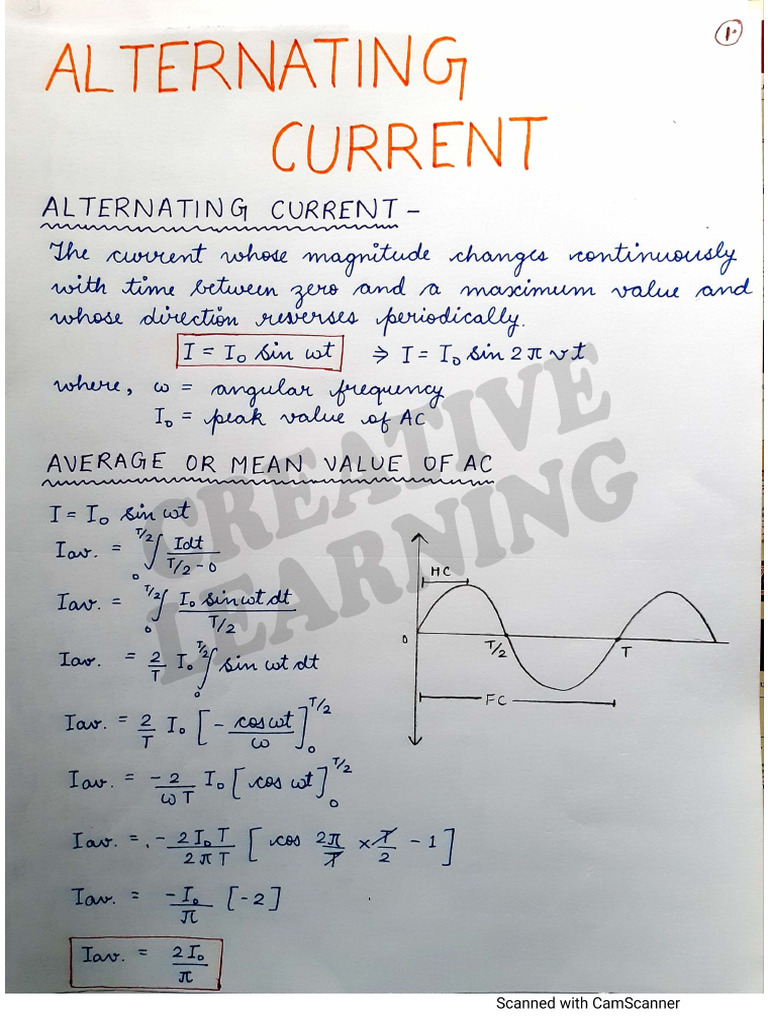 1.
ALTERNATING
CURRENT
ALTERNATING CURRENT -
The current whose magnitude changes continuously
with time between zero and a maximum value and
whose direction reverses periodically.
I = I₀ sin ωt ⇒ I = I₀ sin 2π ν t
where, ω = angular frequency
I₀ = peak value of AC
AVERAGE OR MEAN VALUE OF AC
I = I₀ sin ωt
Iav. = ₀∫^{T/2} Idt / T/2 - 0
Iav. = ₀∫^{T/2} I₀ sin ωt dt / T/2
Iav. = 2/T I₀ ₀∫^{T/2} sin ωt dt
Iav. = 2/T I₀ [ - cos ωt / ω ]₀^{T/2}
Iav. = -2/ωT I₀ [ cos ωt ]₀^{T/2}
Iav. = - 2I₀T / 2πT [ cos 2π/T × T/2 - 1 ]
Iav. = -I₀/π [-2]
Iav. = 2I₀/π
HC
0
T/2
T
FC
CREATIVE
LEARNING
Scanned with CamScanner